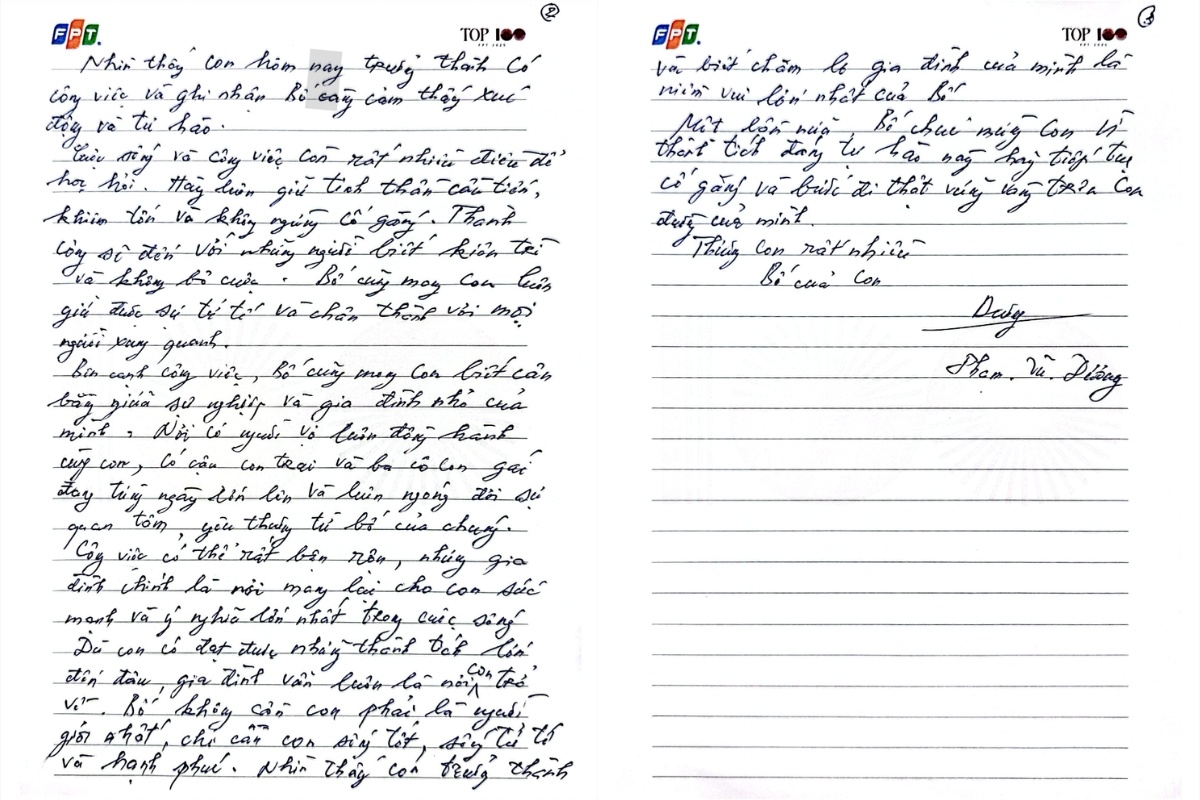 FPT.
TOP 100
FPT 2025
2
Nhìn thấy con hôm nay trưởng thành có
công việc và ghi nhân Bố càng cảm thấy xúc
động và tự hào.
Cuộc sống và công việc còn rất nhiều điều để
học hỏi. Hãy luôn giữ tinh thần cầu tiến,
khiêm tốn và không ngừng cố gắng. Thành
công sẽ đến với những người biết kiên trì
và không bỏ cuộc. Bố cũng mong con luôn
giữ được sự tử tế và chân thành với mọi
người xung quanh.
Bên cạnh công việc, Bố cũng mong con biết cân
bằng giữa sự nghiệp và gia đình nhỏ của
mình, Nơi có người vợ luôn đồng hành
cùng con, có cậu con trai và ba cô con gái
đang từng ngày lớn lên và luôn ngóng đợi sự
quan tâm, yêu thương từ bố của chúng.
Công việc có thể rất bận rộn, nhưng gia
đình chính là nơi mang lại cho con sức
mạnh và ý nghĩa lớn nhất trong cuộc sống
Dù con có đạt được những thành tích lớn
đến đâu, gia đình vẫn luôn là nơi con trở
về. Bố không cần con phải là người
giỏi nhất, chỉ cần con sống tốt, sống tử tế
và hạnh phúc. Nhìn thấy con trưởng thành
FPT.
TOP 100
FPT 2025
3
và biết chăm lo gia đình của mình là
niềm vui lớn nhất của Bố
Một lần nữa, Bố chúc mừng con vì
thành tích đáng tự hào này hãy tiếp tục
cố gắng và bước đi thật vững vàng trên con
đường của mình.
Thương con rất nhiều
Bố của con
Dương
Phạm. Vũ. Dương